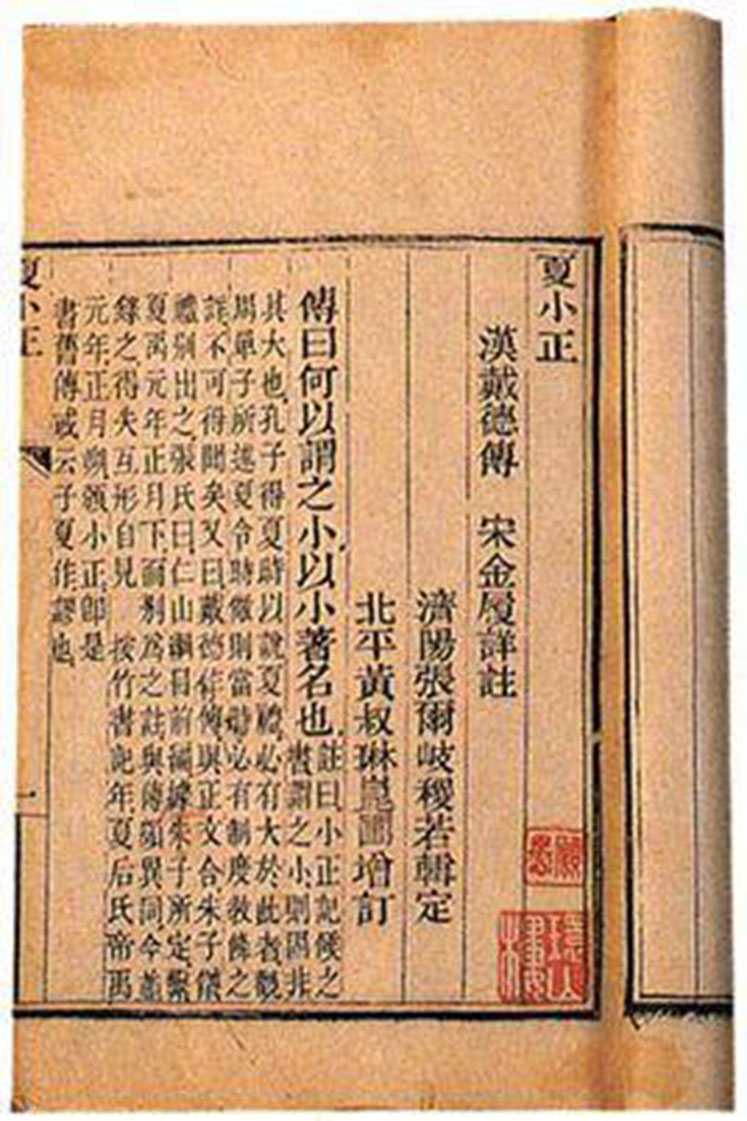 夏小正
漢戴德傳　宋金履詳註
濟陽張爾岐稷若輯定
北平黃叔琳崑圃增訂
傳曰何以謂之小以小著名也註曰小正記候之
書謂之小則固非
其大也孔子得夏時以說夏禮必有大於此者觀
周單子所述夏令時儆則當時必有制度教條之
詳不可得聞矣又曰戴德作傳與正文合朱子儀
禮別出之張氏曰仁山綱目前編據朱子所定繫
夏禹元年正月下而別爲之註與傳頗異同今並
錄之得失互形自見　按竹書記年夏后氏帝禹
元年正月朔頒小正卽是
書舊傳或云子夏作謬也
夏小正
一